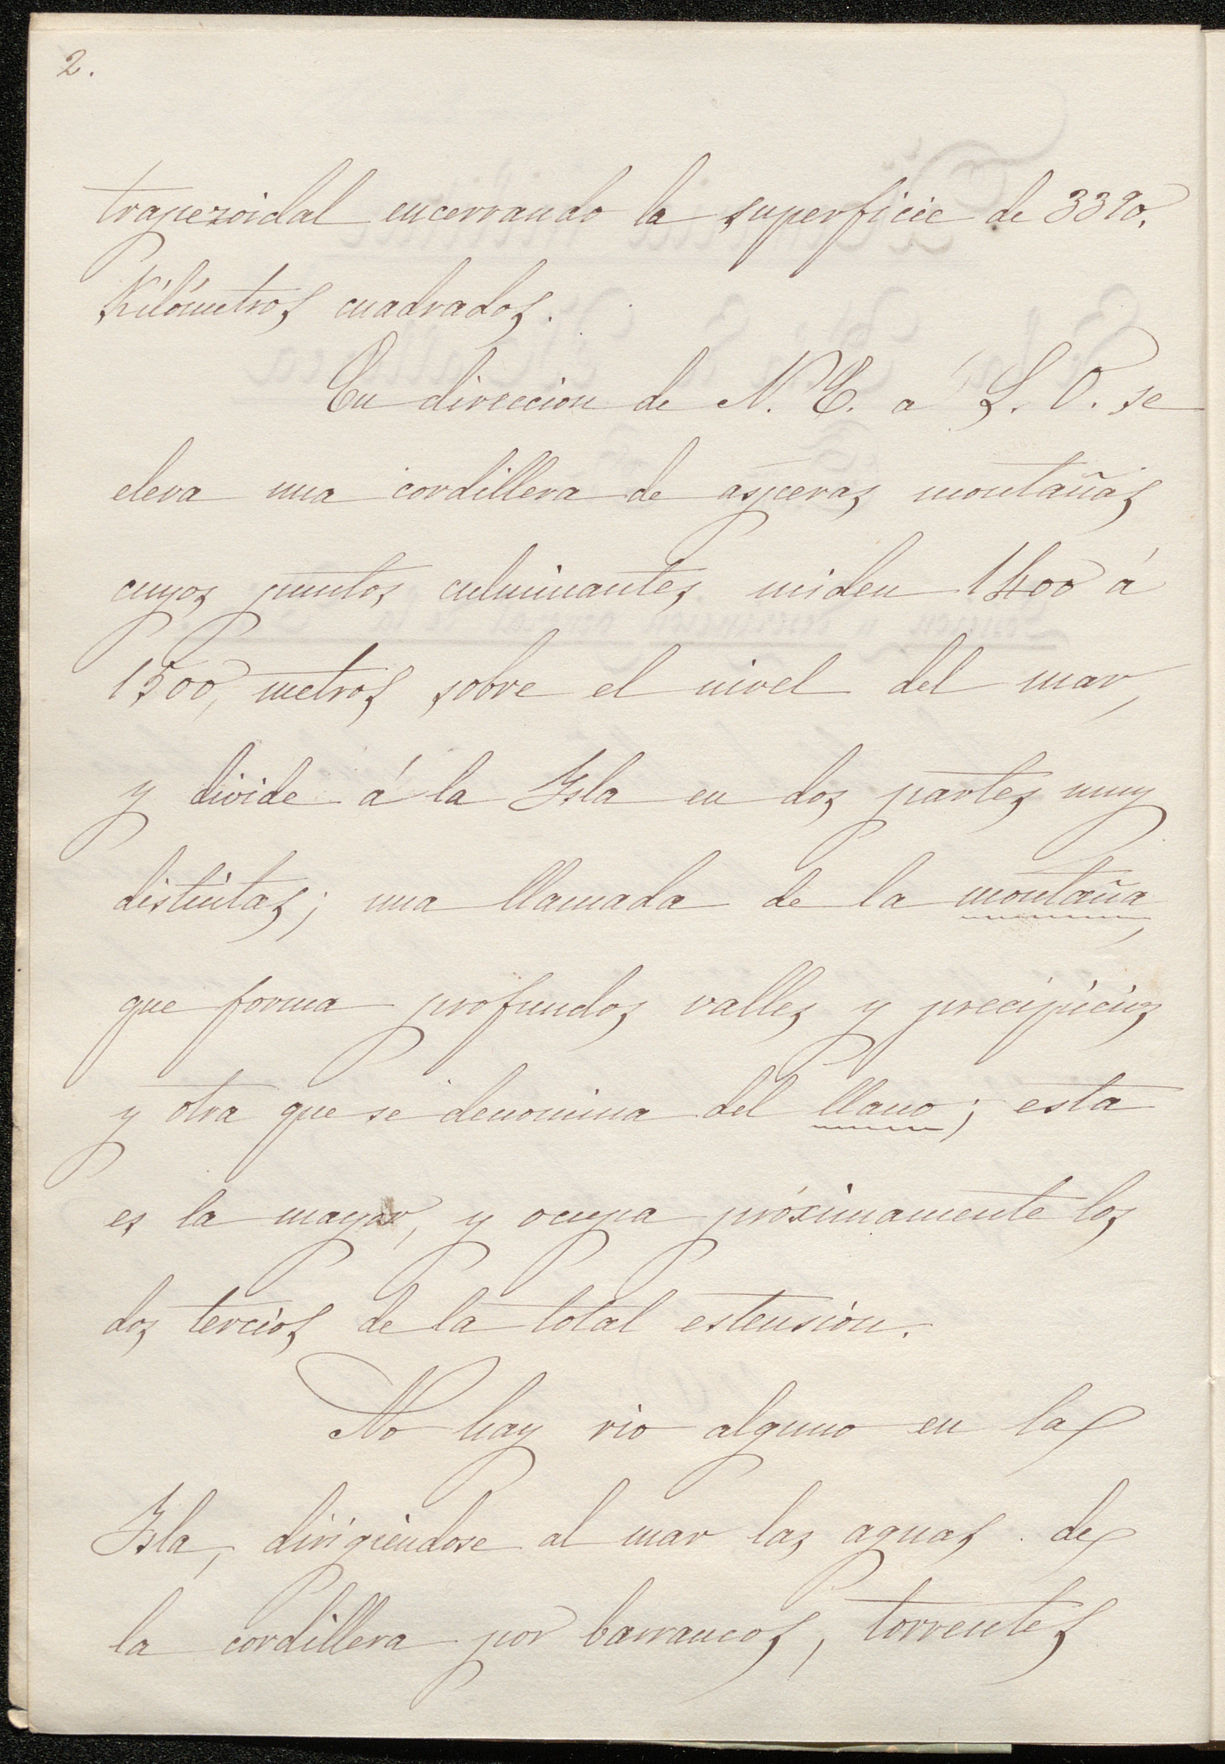 2.
trapezoidal encerrando la superficie de 3390,
Kilómetros cuadrados.
En direccion de N. E. a S. O. se
eleva una cordillera de asperas montañas
cuyos puntos culminantes miden 1400 á
1500, metros sobre el nivel del mar,
y divide á la Isla en dos partes muy
distintas; una llamada de la montaña,
que forma profundos valles y precipicios
y otra que se denomina del llano; esta
es la mayor, y ocupa próximamente los
dos tercios de la total estension.
No hay rio alguno en la
Isla, dirigiendose al mar las aguas de
la cordillera por barrancos, torrentes